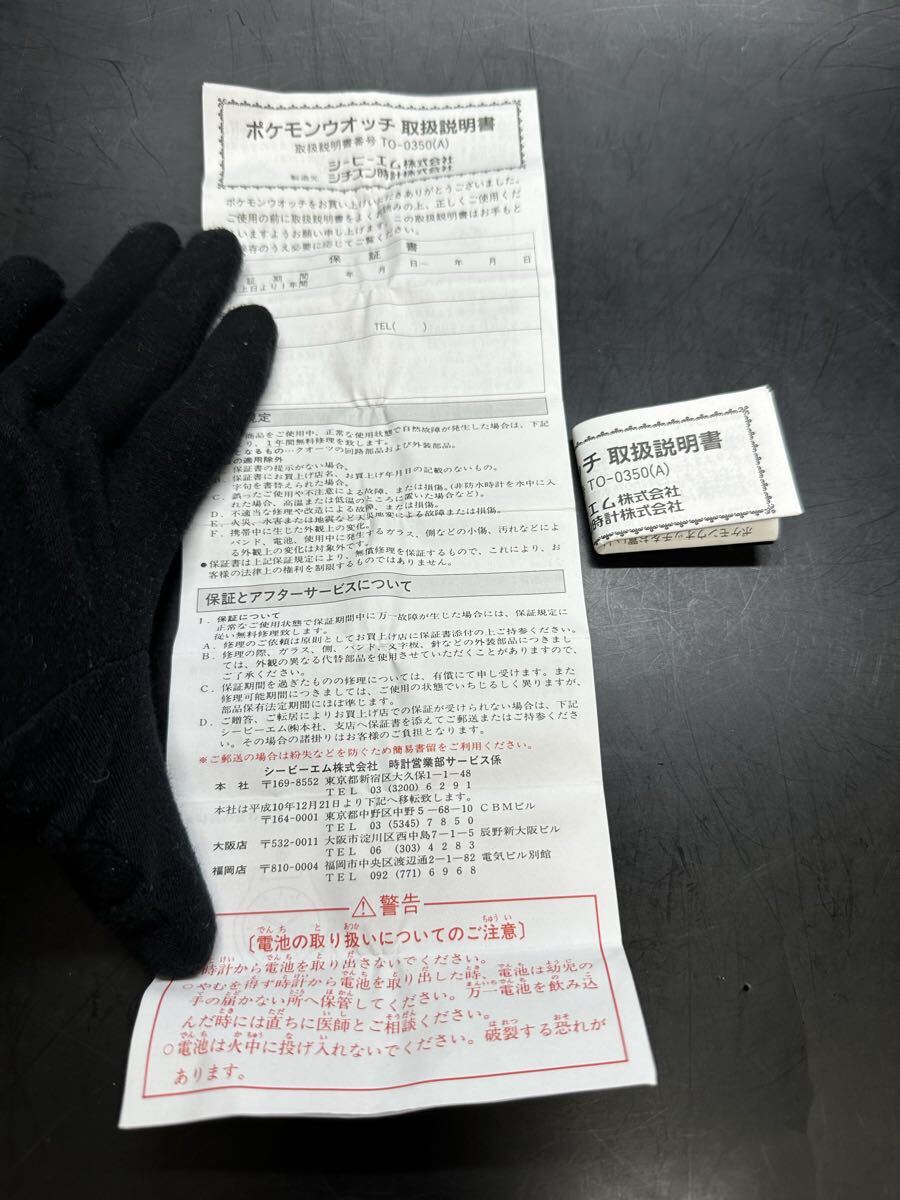 ポケモンウオッチ 取扱説明書
取扱説明書番号 TO-0350(A)
シービーエム株式会社
製造元 シチズン時計株式会社
ポケモンウオッチをお買い上げいただきありがとうございました。
ご使用の前に取扱説明書をよく みの上、正しくご使用くだ
いますようお願い申し上げます この取扱説明書はお手もと
保存のうえ必要に応じてご覧ください。
保証書
証期間 年 月 日〜 年 月 日
上日より1年間
TEL( )
規定
商品をご使用中、正常な使用状態で自然故障が発生した場合は、下記
り、1年間無料修理を致します。
なるもの…クオーツの回路部品および外装部品。
の適用除外
保証書の提示がない場合。
保証書にお買上げ店名、お買上げ年月日の記載のないもの。
字句を書替えられた場合。
C. 誤ったご使用や不注意による故障、または損傷。(非防水時計を水中に入
れた場合、高温または低温のところに置いた場合など)。
D. 不適当な修理や改造による故障、または損傷。
E. 火災、水害または地震など天災地変による故障または損傷。
F. 携帯中に生じた外観上の変化。
バンド、電池、使用中に発生するガラス、側などの小傷、汚れなどによ
る外観上の変化は対象外です。
●保証書は上記保証規定により、無償修理を保証するもので、これにより、お
客様の法律上の権利を制限するものではありません。
保証とアフターサービスについて
1. 保証について
正常なご使用状態で保証期間中に万一故障が生じた場合には、保証規定に
従い無料修理致します。
A. 修理のご依頼は原則としてお買上げ店に保証書添付の上ご持参ください。
B. 修理の際、ガラス、側、バンド、文字板、針などの外装部品につきまし
ては、外観の異なる代替部品を使用させていただくことがありますので、
ご了承ください。
C. 保証期間を過ぎたものの修理については、有償にて申し受けます。また
修理可能期間につきましては、ご使用の状態でいちじるしく異りますが、
部品保有法定期間にほぼ準じます。
D. ご贈答、ご転居によりお買上げ店での保証が受けられない場合は、下記
シービーエム㈱本社、支店へ保証書を添えてご郵送またはご持参くださ
い。その場合の諸掛りはお客様のご負担となります。
※ご郵送の場合は紛失などを防ぐため簡易書留をご利用ください。
シービーエム株式会社 時計営業部サービス係
本社 〒169-8552 東京都新宿区大久保1-1-48
TEL 03 (3200) 6291
本社は平成10年12月21日より下記へ移転致します。
〒164-0001 東京都中野区中野5-68-10 CBMビル
TEL 03 (5345) 7850
大阪店 〒532-0011 大阪市淀川区西中島7-1-5 辰野新大阪ビル
TEL 06 (303) 4283
福岡店 〒810-0004 福岡市中央区渡辺通2-1-82 電気ビル別館
TEL 092 (771) 6968
⚠警告
〔電池の取り扱いについてのご注意〕
時計から電池を取り出さないでください。
○やむを得ず時計から電池を取り出した時、電池は幼児の
手の届かない所へ保管してください。万一電池を飲み込
んだ時には直ちに医師とご相談ください。
○電池は火中に投げ入れないでください。破裂する恐れが
あります。
チ 取扱説明書
TO-0350(A)
エム株式会社
時計株式会社
ポケモンウオッチをお買い